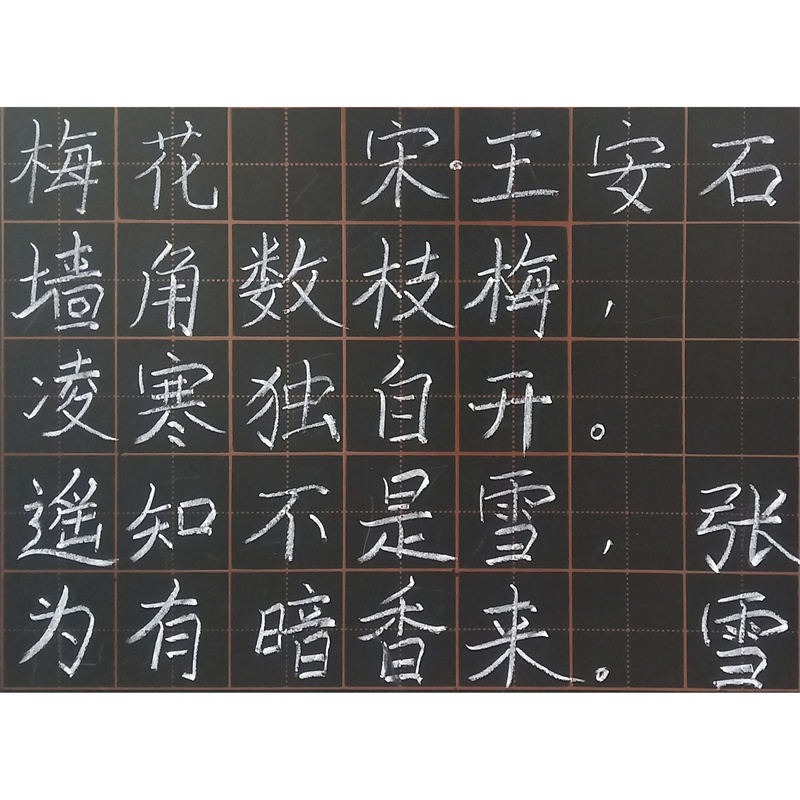 梅花 宋·王安石
墙角数枝梅，
凌寒独自开。
遥知不是雪， 张
为有暗香来。 雪